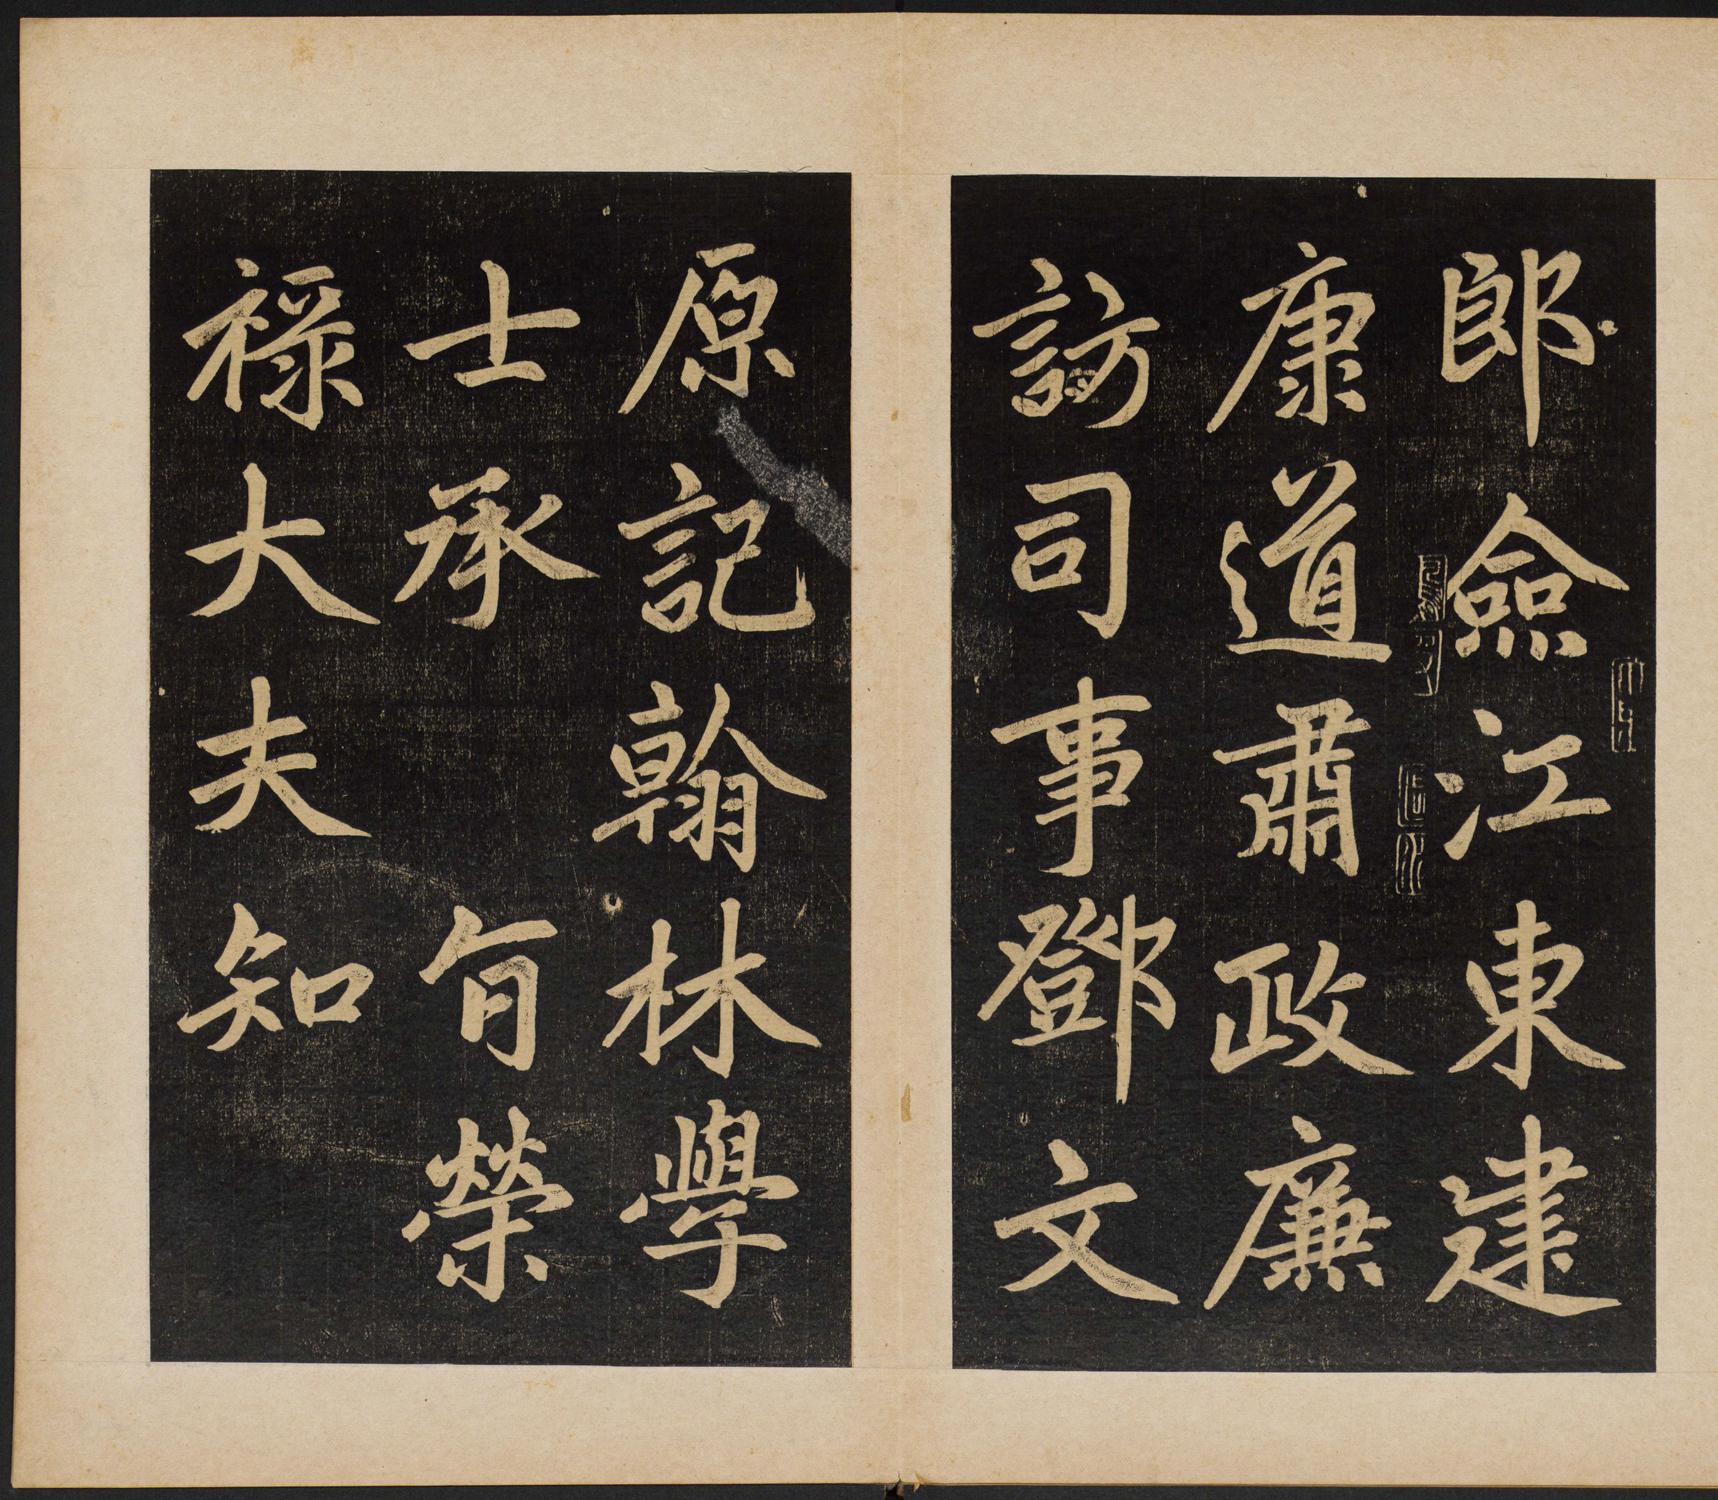 郎僉江東建
康道肅政廉
訪司事鄧文
原記翰林學
士承 旨榮
祿大夫知